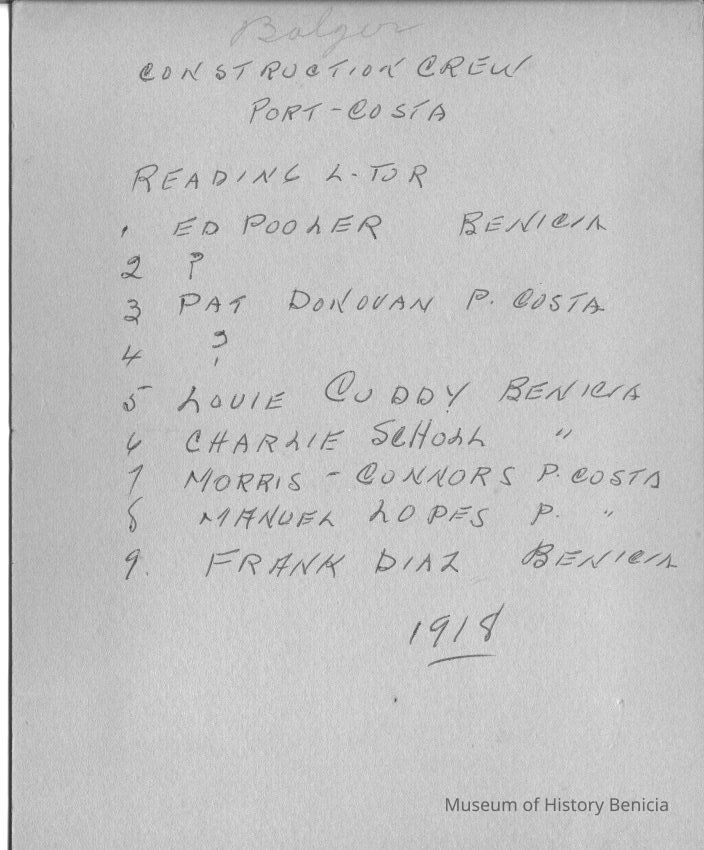 Bolger
CONSTRUCTION CREW
PORT-COSTA
READING L-TOR
1 ED POOLER BENICIA
2 ?
3 PAT DONOVAN P. COSTA
4 ?
5 LOUIE CUDDY BENICIA
6 CHARLIE SCHOLL "
7 MORRIS - CONNORS P. COSTA
8 MANUEL LOPES P. "
9. FRANK DIAZ BENICIA
1918
Museum of History Benicia